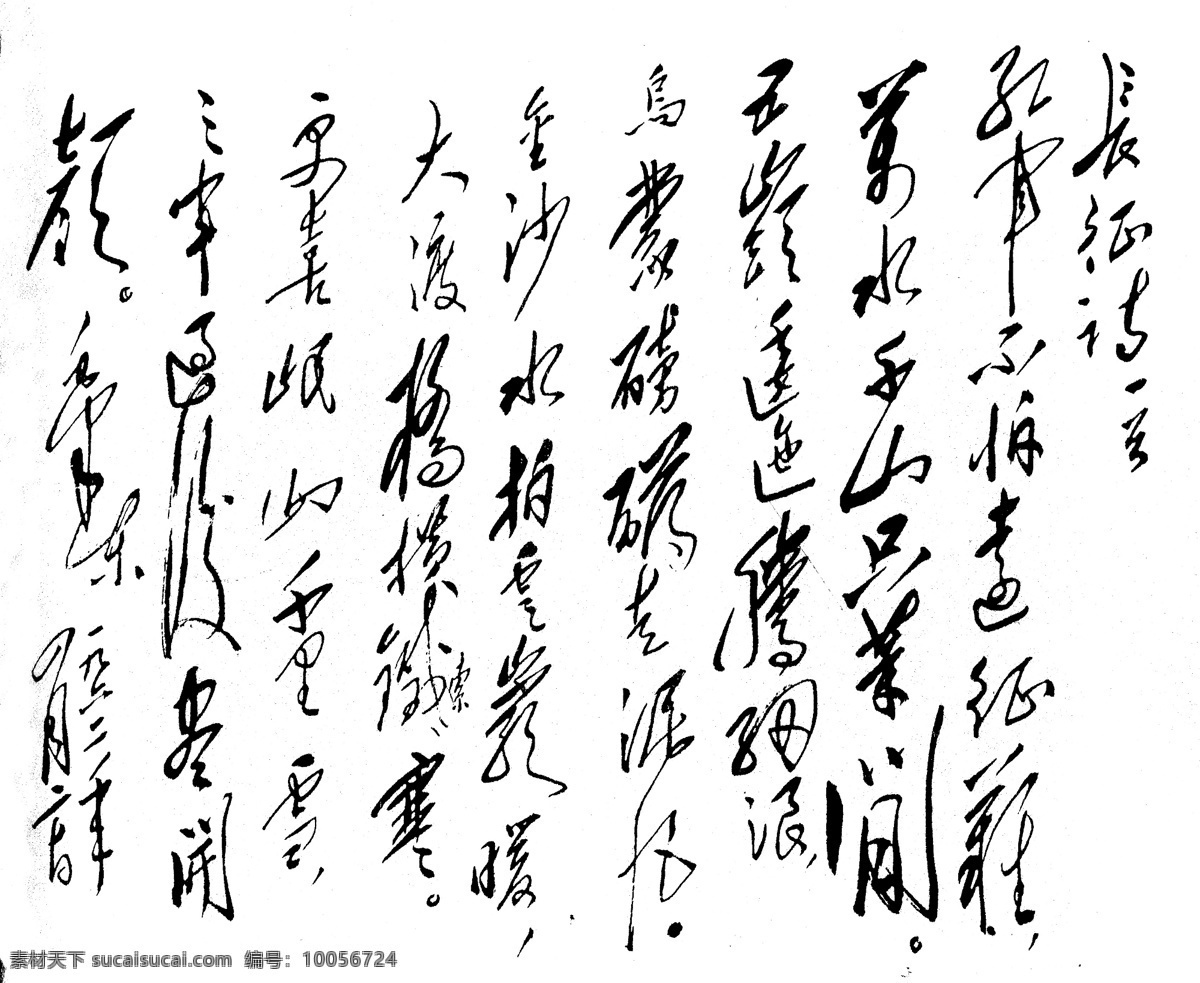 長征詩一首
紅軍不怕遠征難,
萬水千山只等閒。
五嶺逶迤騰細浪,
烏蒙磅礴走泥丸。
金沙水拍雲巖暖,
大渡橋橫鐵索寒。
更喜岷山千里雪,
三軍過後盡開
顏。毛澤東
一九六二年
四月
素材天下 sucaisucai.com 编号:10056724